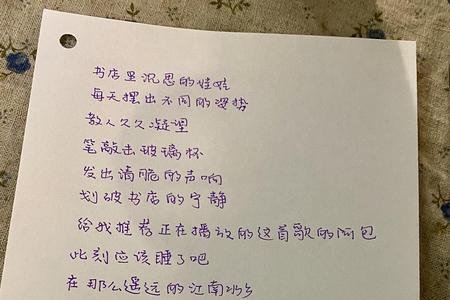 书店里沉思的娃娃
每天摆出不同的姿势
教人久久凝望
笔敲击玻璃杯
发出清脆的声响
划破书店的宁静
给我推荐正在播放的这首歌的阿包
此刻应该睡了吧
在那么遥远的江南